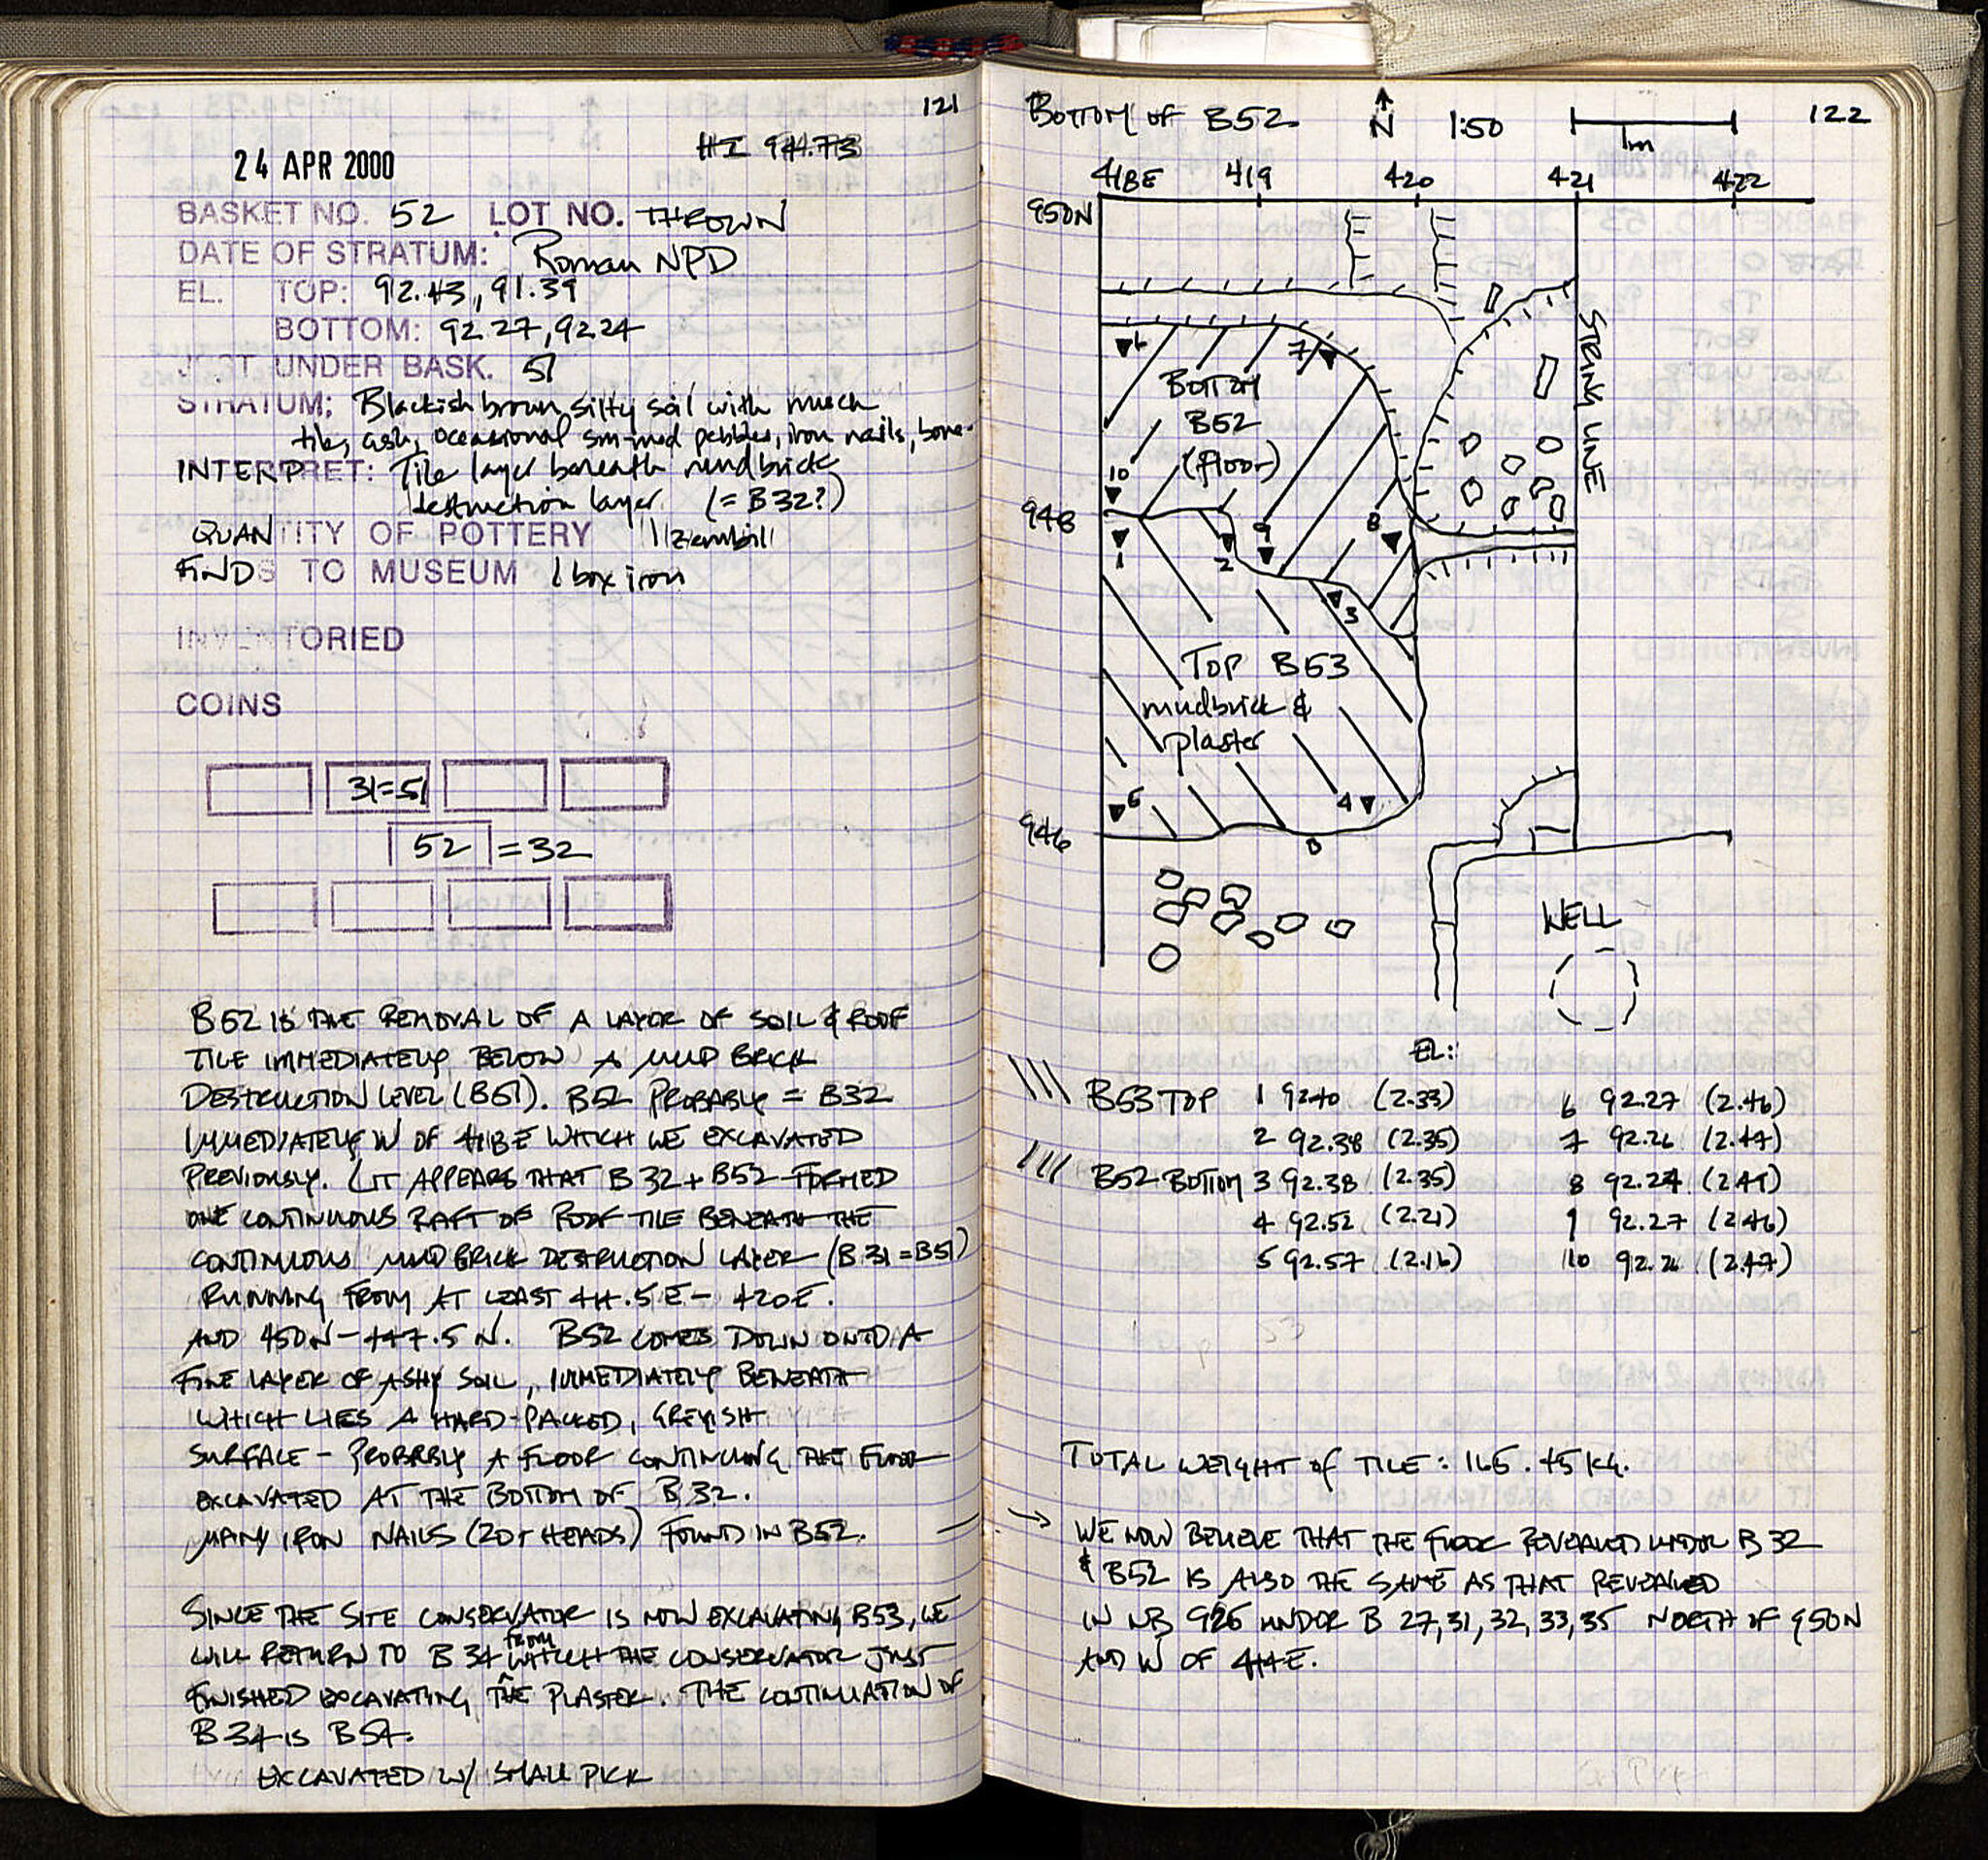 121
HI 94.73
24 APR 2000
BASKET NO. 52 LOT NO. THROWN
DATE OF STRATUM: Roman NPD
EL. TOP: 92.43, 91.39
BOTTOM: 92.27, 92.24
JUST UNDER BASK. 51
STRATUM: Blackish brown silty soil with much
tile, ash, occasional sm-med pebbles, iron nails, bone.
INTERPRET: Tile layer beneath mudbrick
destruction layer. (= B32?)
QUANTITY OF POTTERY 1 zembil
FINDS TO MUSEUM 1 box iron
INVENTORIED
COINS
31=51
52 = 32
B52 IS THE REMOVAL OF A LAYER OF SOIL & ROOF
TILE IMMEDIATELY BELOW A MUD BRICK
DESTRUCTION LEVEL (B51). B52 PROBABLY = B32
IMMEDIATELY W OF 418E WHICH WE EXCAVATED
PREVIOUSLY. IT APPEARS THAT B32 + B52 FORMED
ONE CONTINUOUS RAFT OF ROOF TILE BENEATH THE
CONTINUOUS MUD BRICK DESTRUCTION LAYER (B31=B51)
RUNNING FROM AT LEAST 414.5E - 420E.
AND 950N - 947.5N. B52 COMES DOWN ONTO A
FINE LAYER OF ASHY SOIL, IMMEDIATELY BENEATH
WHICH LIES A HARD-PACKED, GREYISH
SURFACE - PROBABLY A FLOOR CONTINUING THE FLOOR
EXCAVATED AT THE BOTTOM OF B32.
MANY IRON NAILS (20+ HEADS) FOUND IN B52.
SINCE THE SITE CONSERVATOR IS NOW EXCAVATING B53, WE
WILL RETURN TO B34 from WHICH THE CONSERVATOR JUST
FINISHED EXCAVATING THE PLASTER. THE CONTINUATION OF
B34 IS B54.
EXCAVATED W/ SMALL PICK
BOTTOM OF B52 N 1:50 1m 122
418E 419 420 421 422
950N
STRING LINE
6 7
BOTTOM
B52
(floor)
10
948
1 2 9 8
3
TOP B53
mudbrick &
plaster
5 4
946
WELL
EL:
B53 TOP 1 92.40 (2.33) 6 92.27 (2.46)
2 92.38 (2.35) 7 92.26 (2.47)
B52 BOTTOM 3 92.38 (2.35) 8 92.24 (2.49)
4 92.52 (2.21) 9 92.27 (2.46)
5 92.57 (2.16) 10 92.26 (2.47)
TOTAL WEIGHT of TILE: 165.45 KG.
→ WE NOW BELIEVE THAT THE FLOOR REVEALED UNDER B 32
& B52 IS ALSO THE SAME AS THAT REVEALED
IN NB 926 UNDER B 27, 31, 32, 33, 35 NORTH OF 950N
AND W OF 414E.